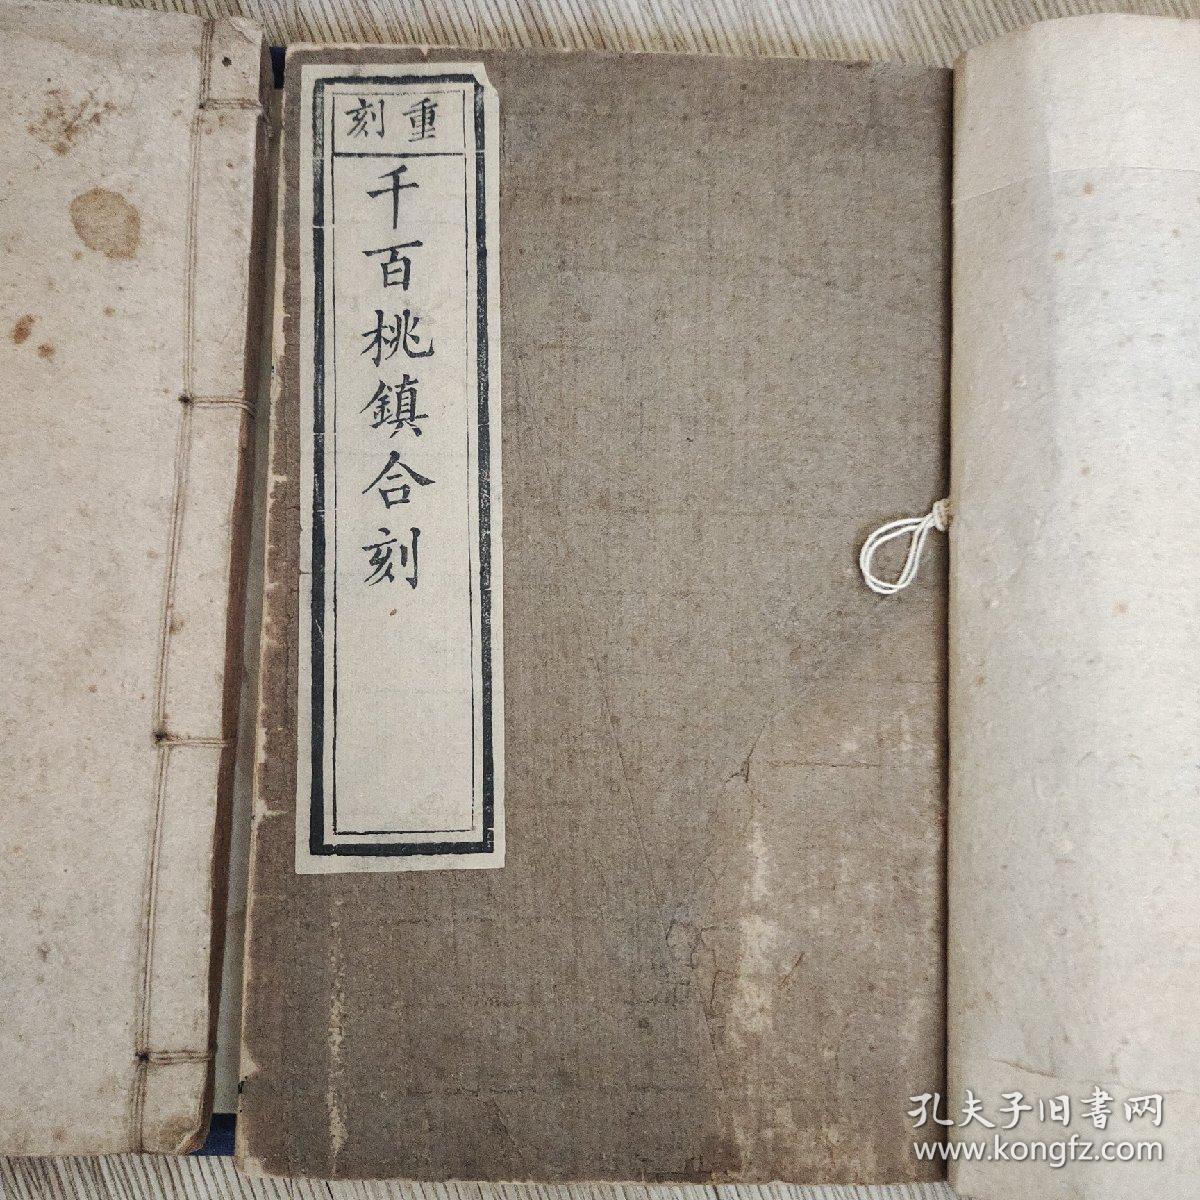 重刻
千百桃鎮合刻
孔夫子旧書网
www.kongfz.com